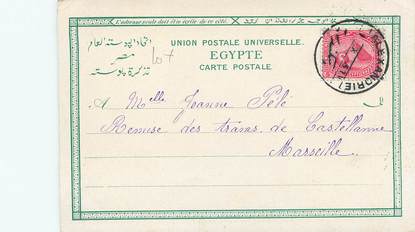 L'adresse seule doit être écrite de ce côté.
UNION POSTALE UNIVERSELLE.
EGYPTE
CARTE POSTALE.
اتحاد البوسته العام
مصر
تذكرة بوسته
107
ALEXANDRIE
A Melle Jeanne Pélé
Remise des trams. de Castellanne
Marseille.